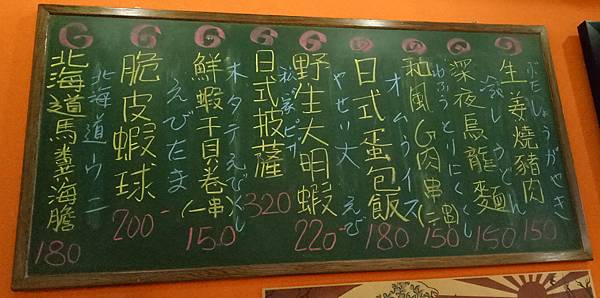 生姜燒豬肉
ぶたしょうがやき
150
深夜烏龍麵
冷しうどん
150
和風肉串(一串)
わふうとりにくくし
150
日式蛋包飯
オムライス
180
野生大明蝦
やせい大えび
220
日式披薩
320
鮮蝦干貝卷(一串)
ホタテえびくし
150
脆皮蝦球
えびたま
200
北海道馬糞海膽
北海道ウニ
180